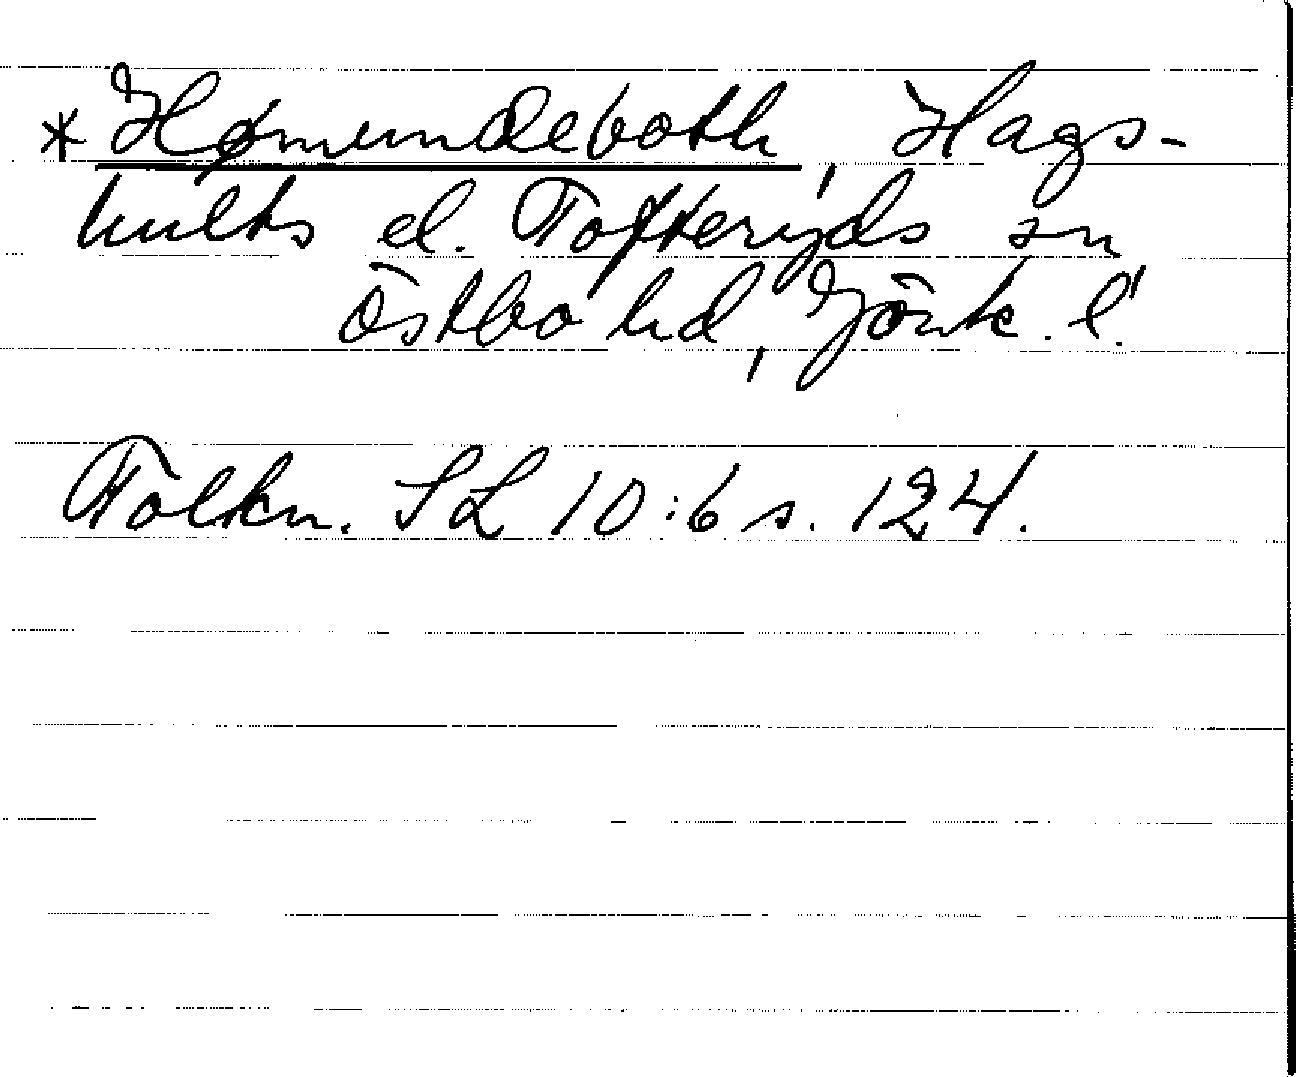 * Hømundeboth, Hags-
hults el. Tofteryds sn
Östbo hd, Jönk. l.
Tolkn. SL 10:6 s. 124.